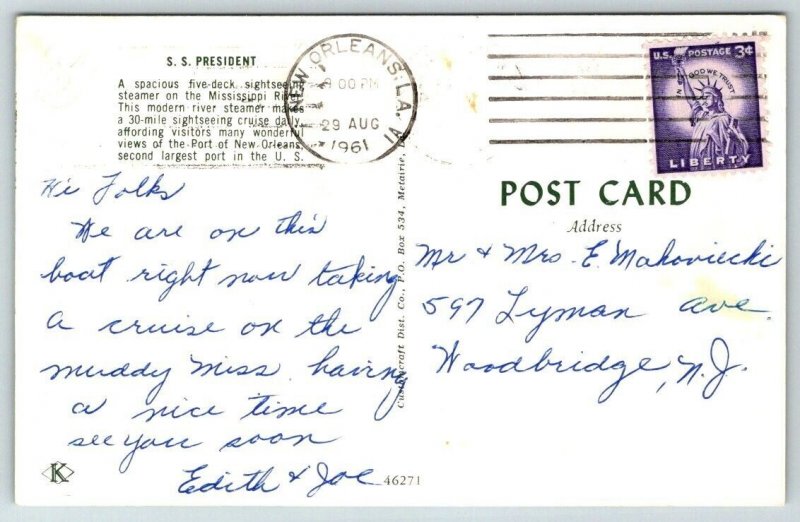 S. S. PRESIDENT
A spacious five-deck sightseeing
steamer on the Mississippi River.
This modern river steamer makes
a 30-mile sightseeing cruise daily,
affording visitors many wonderful
views of the Port of New Orleans,
second largest port in the U. S.
NEW ORLEANS, LA.
00 PM
29 AUG
1961
U.S. POSTAGE 3¢
IN GOD WE TRUST
LIBERTY
Hi Folks
We are on this
boat right now taking
a cruise on the
muddy Miss. having
a nice time
see you soon
Edith & Joe
K
Dist. Co., P.O. Box 534, Metairie,
46271
POST CARD
Address
Mr & Mrs E. Makoviecki
597 Lyman ave.
Woodbridge, N.J.